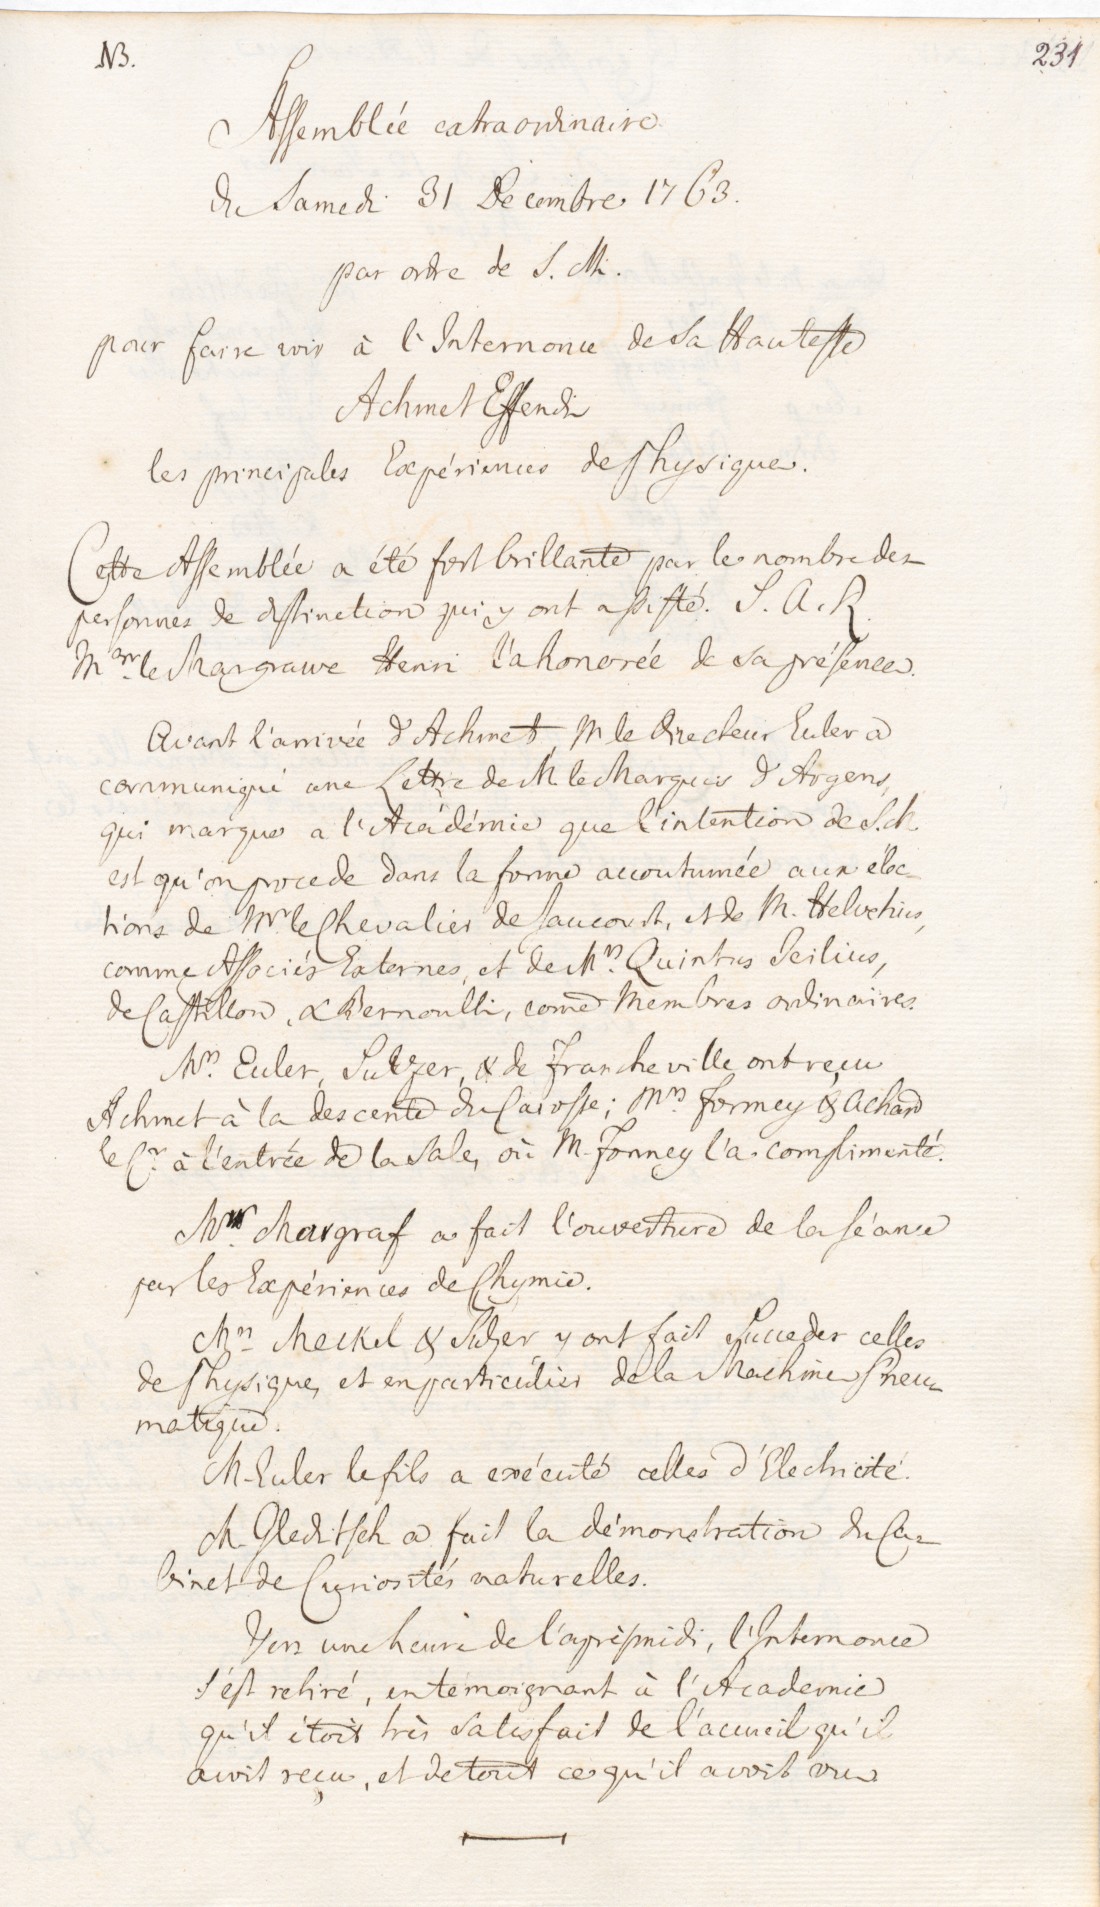 NB.
231
Assemblée extraordinaire
du Samedi 31 Decembre 1763.
par ordre de S. M.
pour faire voir à l'Internonce de Sa Hautesse
Achmet Effendi
les principales Expériences de Physique.
Cette Assemblée a été fort brillante par le nombre des
personnes de distinction qui y ont assisté. S. A. R.
Mgr le Margrave Henri l'a honorée de sa présence.
Avant l'arrivée d'Achmet, M le Directeur Euler a
communiqué une Lettre de M le Marquis d'Argens,
qui marque a l'Académie que l'intention de S. M.
est qu'on procede dans la forme accoutumée aux élec-
tions de Mr le Chevalier de Jaucourt, et de M. Helvetius,
comme Associés Externes, et de Mrs. Quintus Icilius,
de Castillon, & Bernoulli, come Membres ordinaires.
Mrs. Euler, Sulzer, & de Francheville ont reçu
Achmet à la descente du Carosse; Mrs. Formey & Achard
le Cr. à l'entrée de la Sale, où M. Formey l'a complimenté.
Mr. Margraf a fait l'ouverture de la séance
par les Expériences de Chymie.
Mrs Meckel & Sulzer y ont fait succeder celles
de Physique, et en particulier de la Machine Pneu-
matique.
M. Euler le fils a exécuté celles d'Electricité.
M. Gleditsch a fait la démonstration du Ca-
binet de Curiosités naturelles.
Vers une heure de l'aprèsmidi, l'Internonce
s'est retiré, en témoignant à l'Academie
qu'il étoit très satisfait de l'accueil qu'il
avoit reçu, et de tout ce qu'il avoit vu.